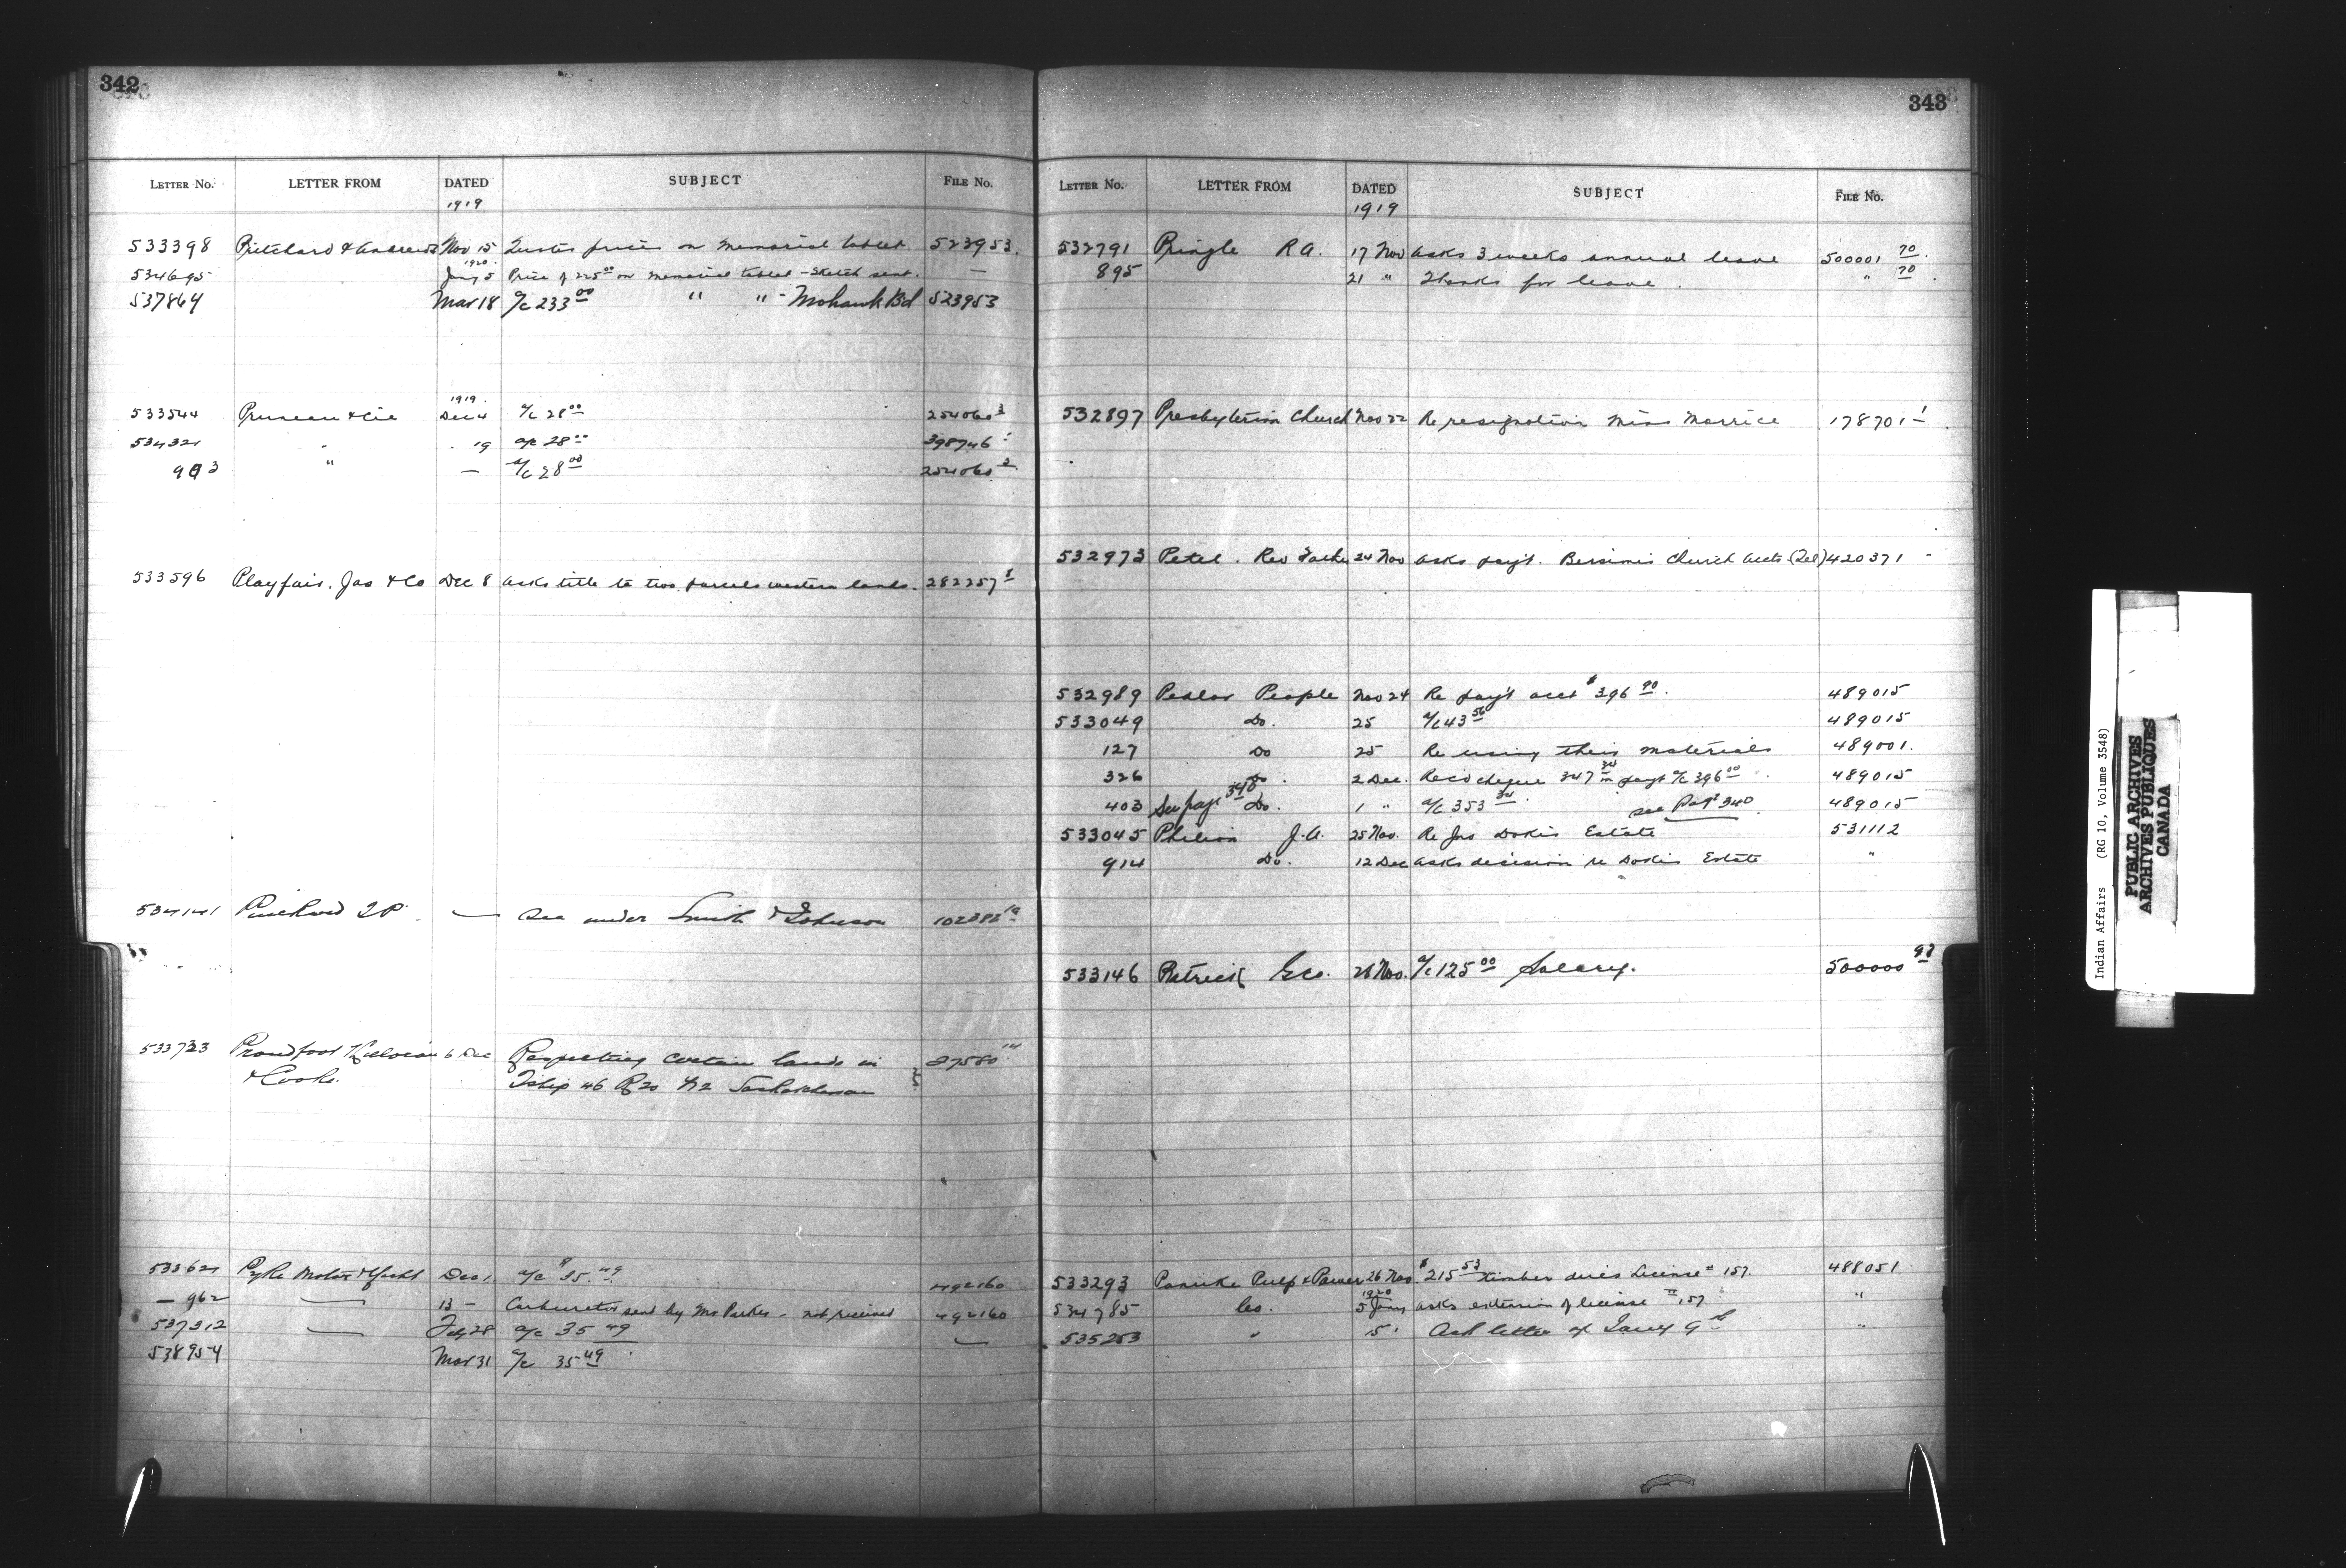 342
LETTER NO. LETTER FROM DATED SUBJECT FILE No.
1919
533398 Pritchard & Andrews Nov 15 Quotes prices on memorial tablet 523953.
1920
534695 Jany 5 Price of 225 00 on memorial tablet - Sketch sent. —
537864 Mar 18 a/c 233 00 " " - Mohawk Bd 523953
1919.
533544 Pruneau & Cie Dec 4 a/c 28 00 254060 3
534321 " 19 a/c 28 00 398746
903 " — a/c 28 00 254060
533596 Playfair. Jas & Co Dec 8 asks title to two parcels western lands. 282257
534141 — See under Smith & Johnson 102382
533723 Proudfoot & Cooke. 6 Dec Respecting certain lands in
Tship 46 R 20 W2 Saskatchewan 27580
533621 Pyke Motor & Yacht Dec 1 a/c $ 35.49 492160
— 962 — 13 — Carburetor sent by Mr Parker - not received 492160
537312 — Feb 28 a/c 35 49 —
538954 Mar 31 a/c 35 49
343
LETTER NO. LETTER FROM DATED SUBJECT FILE No.
1919
532791 Pringle R A. 17 Nov asks 3 weeks annual leave 500001 70.
895 21 " Thanks for leave. " 70
532897 Presbyterian Church Nov 22 Re resignation Miss Morrice 178701 1
532973 Petel. Rev Father 24 Nov asks pay't. Bersimis Church accts (Tel) 420371
532989 Pedlar People Nov 24 Re pay't acct $ 396 90. 489015
533049 Do. 25 a/c 43 56 489015
127 Do 25 Re using their materials 489001.
326 Do. 2 Dec. Recd cheque 347 34 in payt a/c 396 00 489015
403 See page 340 Do. 1 " a/c 353 34. see Page 340 489015
533045 Philion J. A. 25 Nov. Re Jno Dokis Estate 531112
914 Do. 12 Dec asks decision re Dokis Estate "
533146 Patrick Geo. 26 Nov. a/c 125 00 Salary. 500000 93
533293 Panuke Pulp & Power 26 Nov. $ 215 53 timber dues License # 157. 488051
1920
534785 Co. 5 Jany asks extension of license # 157 "
535253 " 15 " Ack letter of Jany 9 th "
Indian Affairs (RG 10, Volume 3548)
PUBLIC ARCHIVES
ARCHIVES PUBLIQUES
CANADA